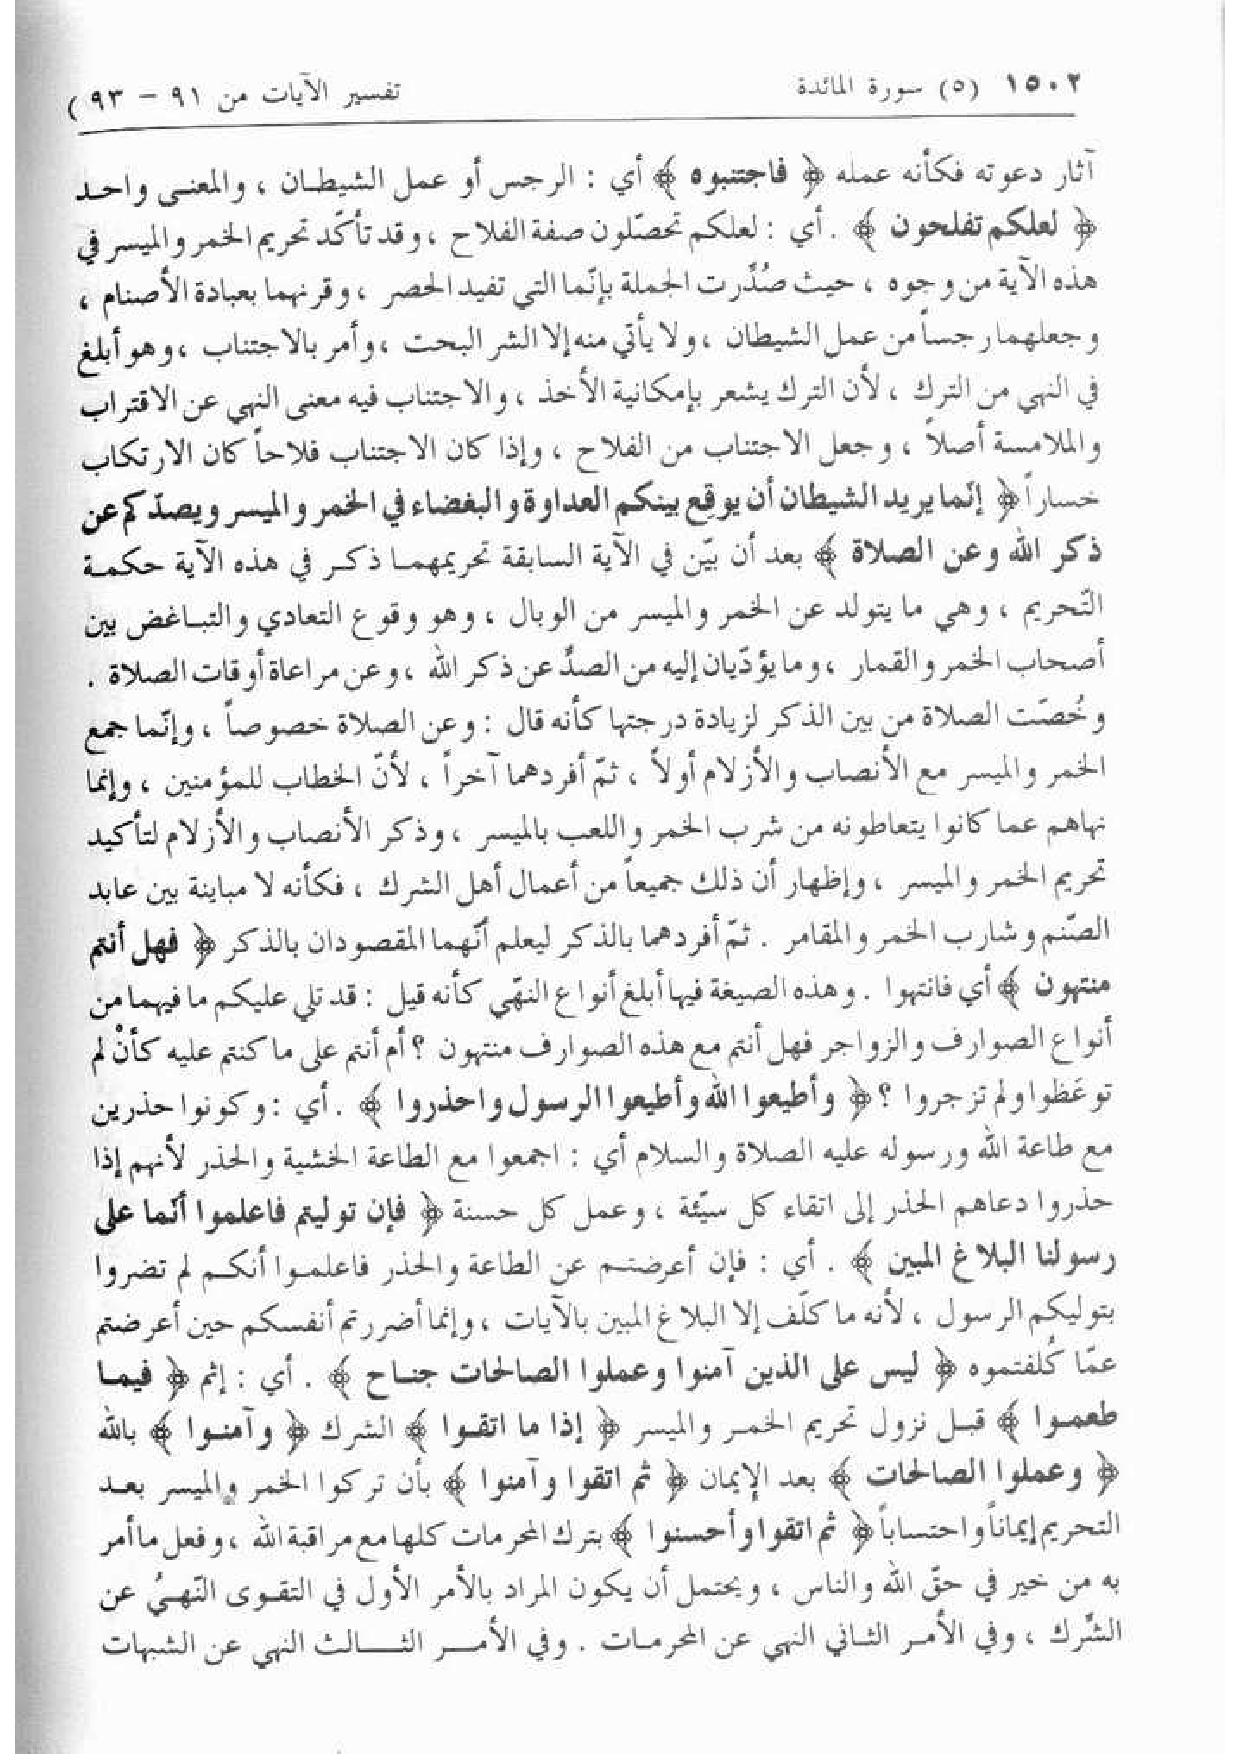 ١٥٠٢ (٥) سورة المائدة تفسير الآيات من ٩١ – ٩٣ )
آثار دعوته فكأنه عمله ﴿ فاجتنبوه ﴾ أي : الرجس أو عمل الشيطـان ، والمعنـى واحـد
﴿ لعلكم تفلحون ﴾ . أي : لعلكم تحصّلون صفة الفلاح ، وقد تأكّد تحريم الخمر والميسر في
هذه الآية من وجوه ، حيث صُدِّرت الجملة بإنّما التي تفيد الحصر ، وقرنهما بعبادة الأصنام ،
وجعلهما رجساً من عمل الشيطان ، ولا يأتي منه إلا الشر البحت ، وأمر بالاجتناب ، وهو أبلغ
في النهي من الترك ، لأن الترك يشعر بإمكانية الأخذ ، والاجتناب فيه معنى النهي عن الاقتراب
والملامسة أصلاً ، وجعل الاجتناب من الفلاح ، وإذا كان الاجتناب فلاحاً كان الارتكاب
خساراً ﴿ إنّما يريد الشيطان أن يوقع بينكم العداوة والبغضاء في الخمر والميسر ويصدّكم عن
ذكر الله وعن الصلاة ﴾ بعد أن بيّن في الآية السابقة تحريمهمـا ذكـر في هذه الآية حكمـة
التّحريم ، وهي ما يتولد عن الخمر والميسر من الوبال ، وهو وقوع التعادي والتبـاغض بين
أصحاب الخمر والقمار ، وما يؤدّيان إليه من الصدِّ عن ذكر الله ، وعن مراعاة أوقات الصلاة .
وخُصّت الصلاة من بين الذكر لزيادة درجتها كأنه قال : وعن الصلاة خصوصاً ، وإنّما جمع
الخمر والميسر مع الأنصاب والأزلام أولاً ، ثمّ أفردهما آخراً ، لأنّ الخطاب للمؤمنين ، وإنما
نهاهم عما كانوا يتعاطونه من شرب الخمر واللعب بالميسر ، وذكر الأنصاب والأزلام لتأكيد
تحريم الخمر والميسر ، وإظهار أن ذلك جميعاً من أعمال أهل الشرك ، فكأنه لا مباينة بين عابد
الصّنم وشارب الخمر والمقامر . ثمّ أفردهما بالذكر ليعلم أنّهما المقصودان بالذكر ﴿ فهل أنتم
منتهون ﴾ أي فانتهوا . وهذه الصيغة فيها أبلغ أنواع النهّي كأنه قيل : قد تلي عليكم ما فيهما من
أنواع الصوارف والزواجر فهل أنتم مع هذه الصوارف منتهون ؟ أم أنتم على ما كنتم عليه كأنْ لم
توعَظوا ولم تزجروا ؟ ﴿ وأطيعوا الله وأطيعوا الرسول واحذروا ﴾ . أي : وكونوا حذرين
مع طاعة الله ورسوله عليه الصلاة والسلام أي : اجمعوا مع الطاعة الخشية والحذر لأنهم إذا
حذروا دعاهم الحذر إلى اتقاء كل سيّئة ، وعمل كل حسنة ﴿ فإن توليتم فاعلموا أنّما على
رسولنا البلاغ المبين ﴾ . أي : فإن أعرضتـم عن الطاعة والحذر فاعلمـوا أنكـم لم تضروا
بتوليكم الرسول ، لأنه ما كلّف إلا البلاغ المبين بالآيات ، وإنما أضررتم أنفسكم حين أعرضتم
عمّا كُلفتموه ﴿ ليس على الذين آمنوا وعملوا الصالحات جنـاح ﴾ . أي : إثم ﴿ فيمـا
طعمـوا ﴾ قبـل نزول تحريم الخمـر والميسر ﴿ إذا ما اتقـوا ﴾ الشرك ﴿ وآمنـوا ﴾ بالله
﴿ وعملوا الصالحات ﴾ بعد الإيمان ﴿ ثم اتقوا وآمنوا ﴾ بأن تركوا الخمر والميسر بعـد
التحريم إيماناً واحتساباً ﴿ ثم اتقوا وأحسنوا ﴾ بترك المحرمات كلها مع مراقبة الله ، وفعل ما أمر
به من خير في حقّ الله والناس ، ويحتمل أن يكون المراد بالأمر الأول في التقـوى النّهـيُ عن
الشِّرك ، وفي الأمـر الثـاني النهي عن المحرمـات . وفي الأمــر الثــالث النهي عن الشبهات